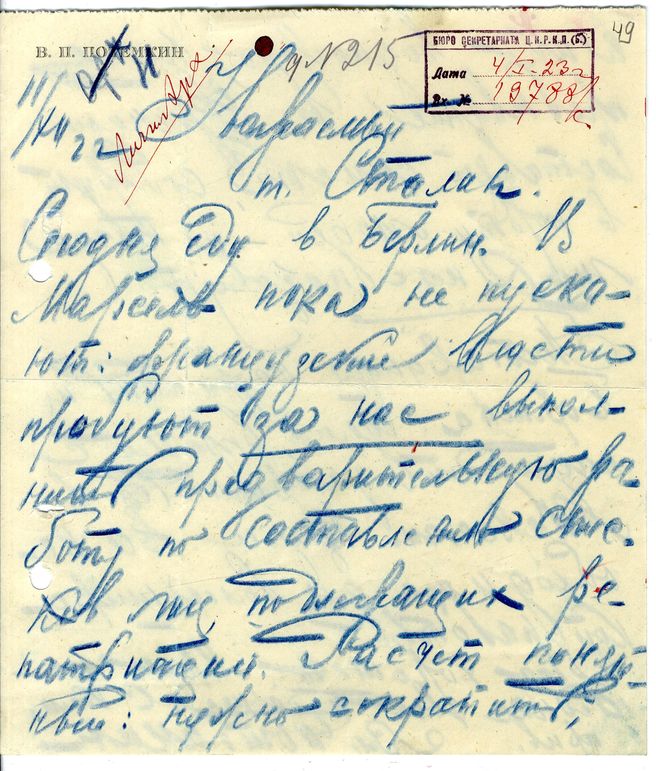 49
В. П. ПОТЕМКИН
№ 215
БЮРО СЕКРЕТАРИАТА Ц.К.Р.К.П.(Б.)
Дата 4/I-23 г
Вх. № 19788/с
Уважаемый
т. Сталин.
Сегодня еду в Берлин. В
Марсель пока не пуска-
ют: французские власти
пробуют за нас выпол-
нить предварительную ра-
боту по составлению спис-
ков лиц, подлежащих ре-
патриации. Расчет понят-
ный: нужно сократить,